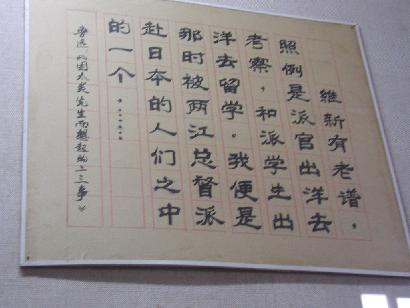 維新有老谱，
照例是派官出洋去
考察，和派学生出
洋去留学。我便是
那时被两江总督派
赴日本的人们之中
的一个……
鲁迅《因太炎先生而想起的二三事》